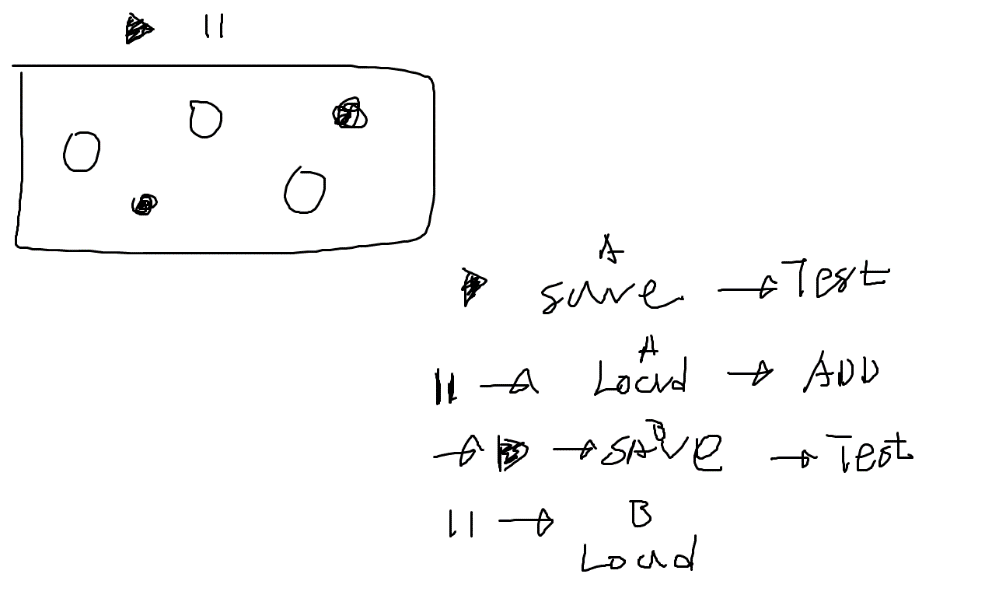 A
save → Test
A
Load → ADD
B
→ SAVE → Test
B
Load